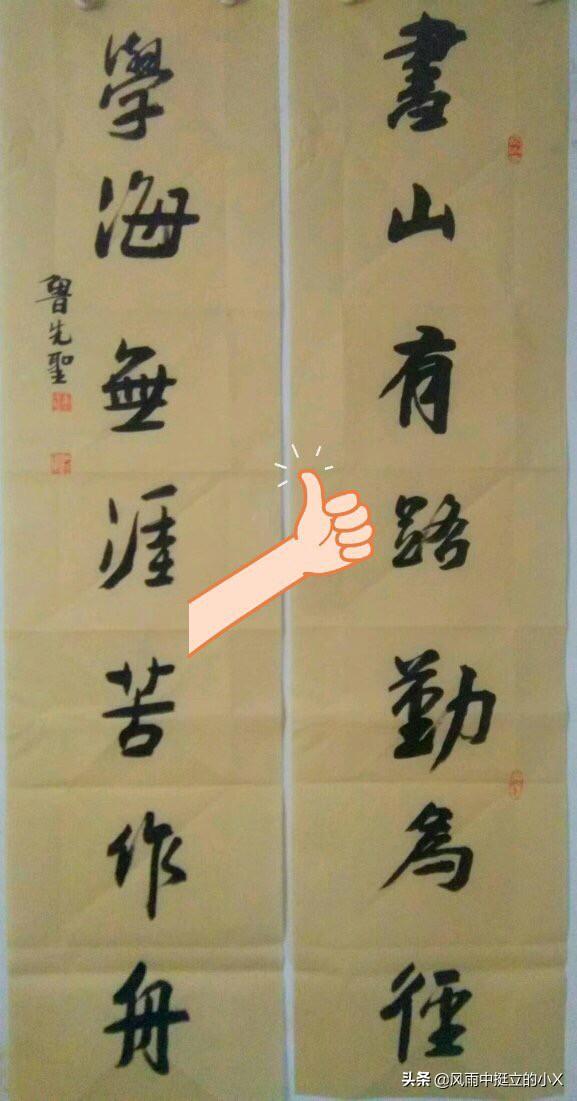 書山有路勤為徑
學海無涯苦作舟
魯先聖
头条 @风雨中挺立的小X